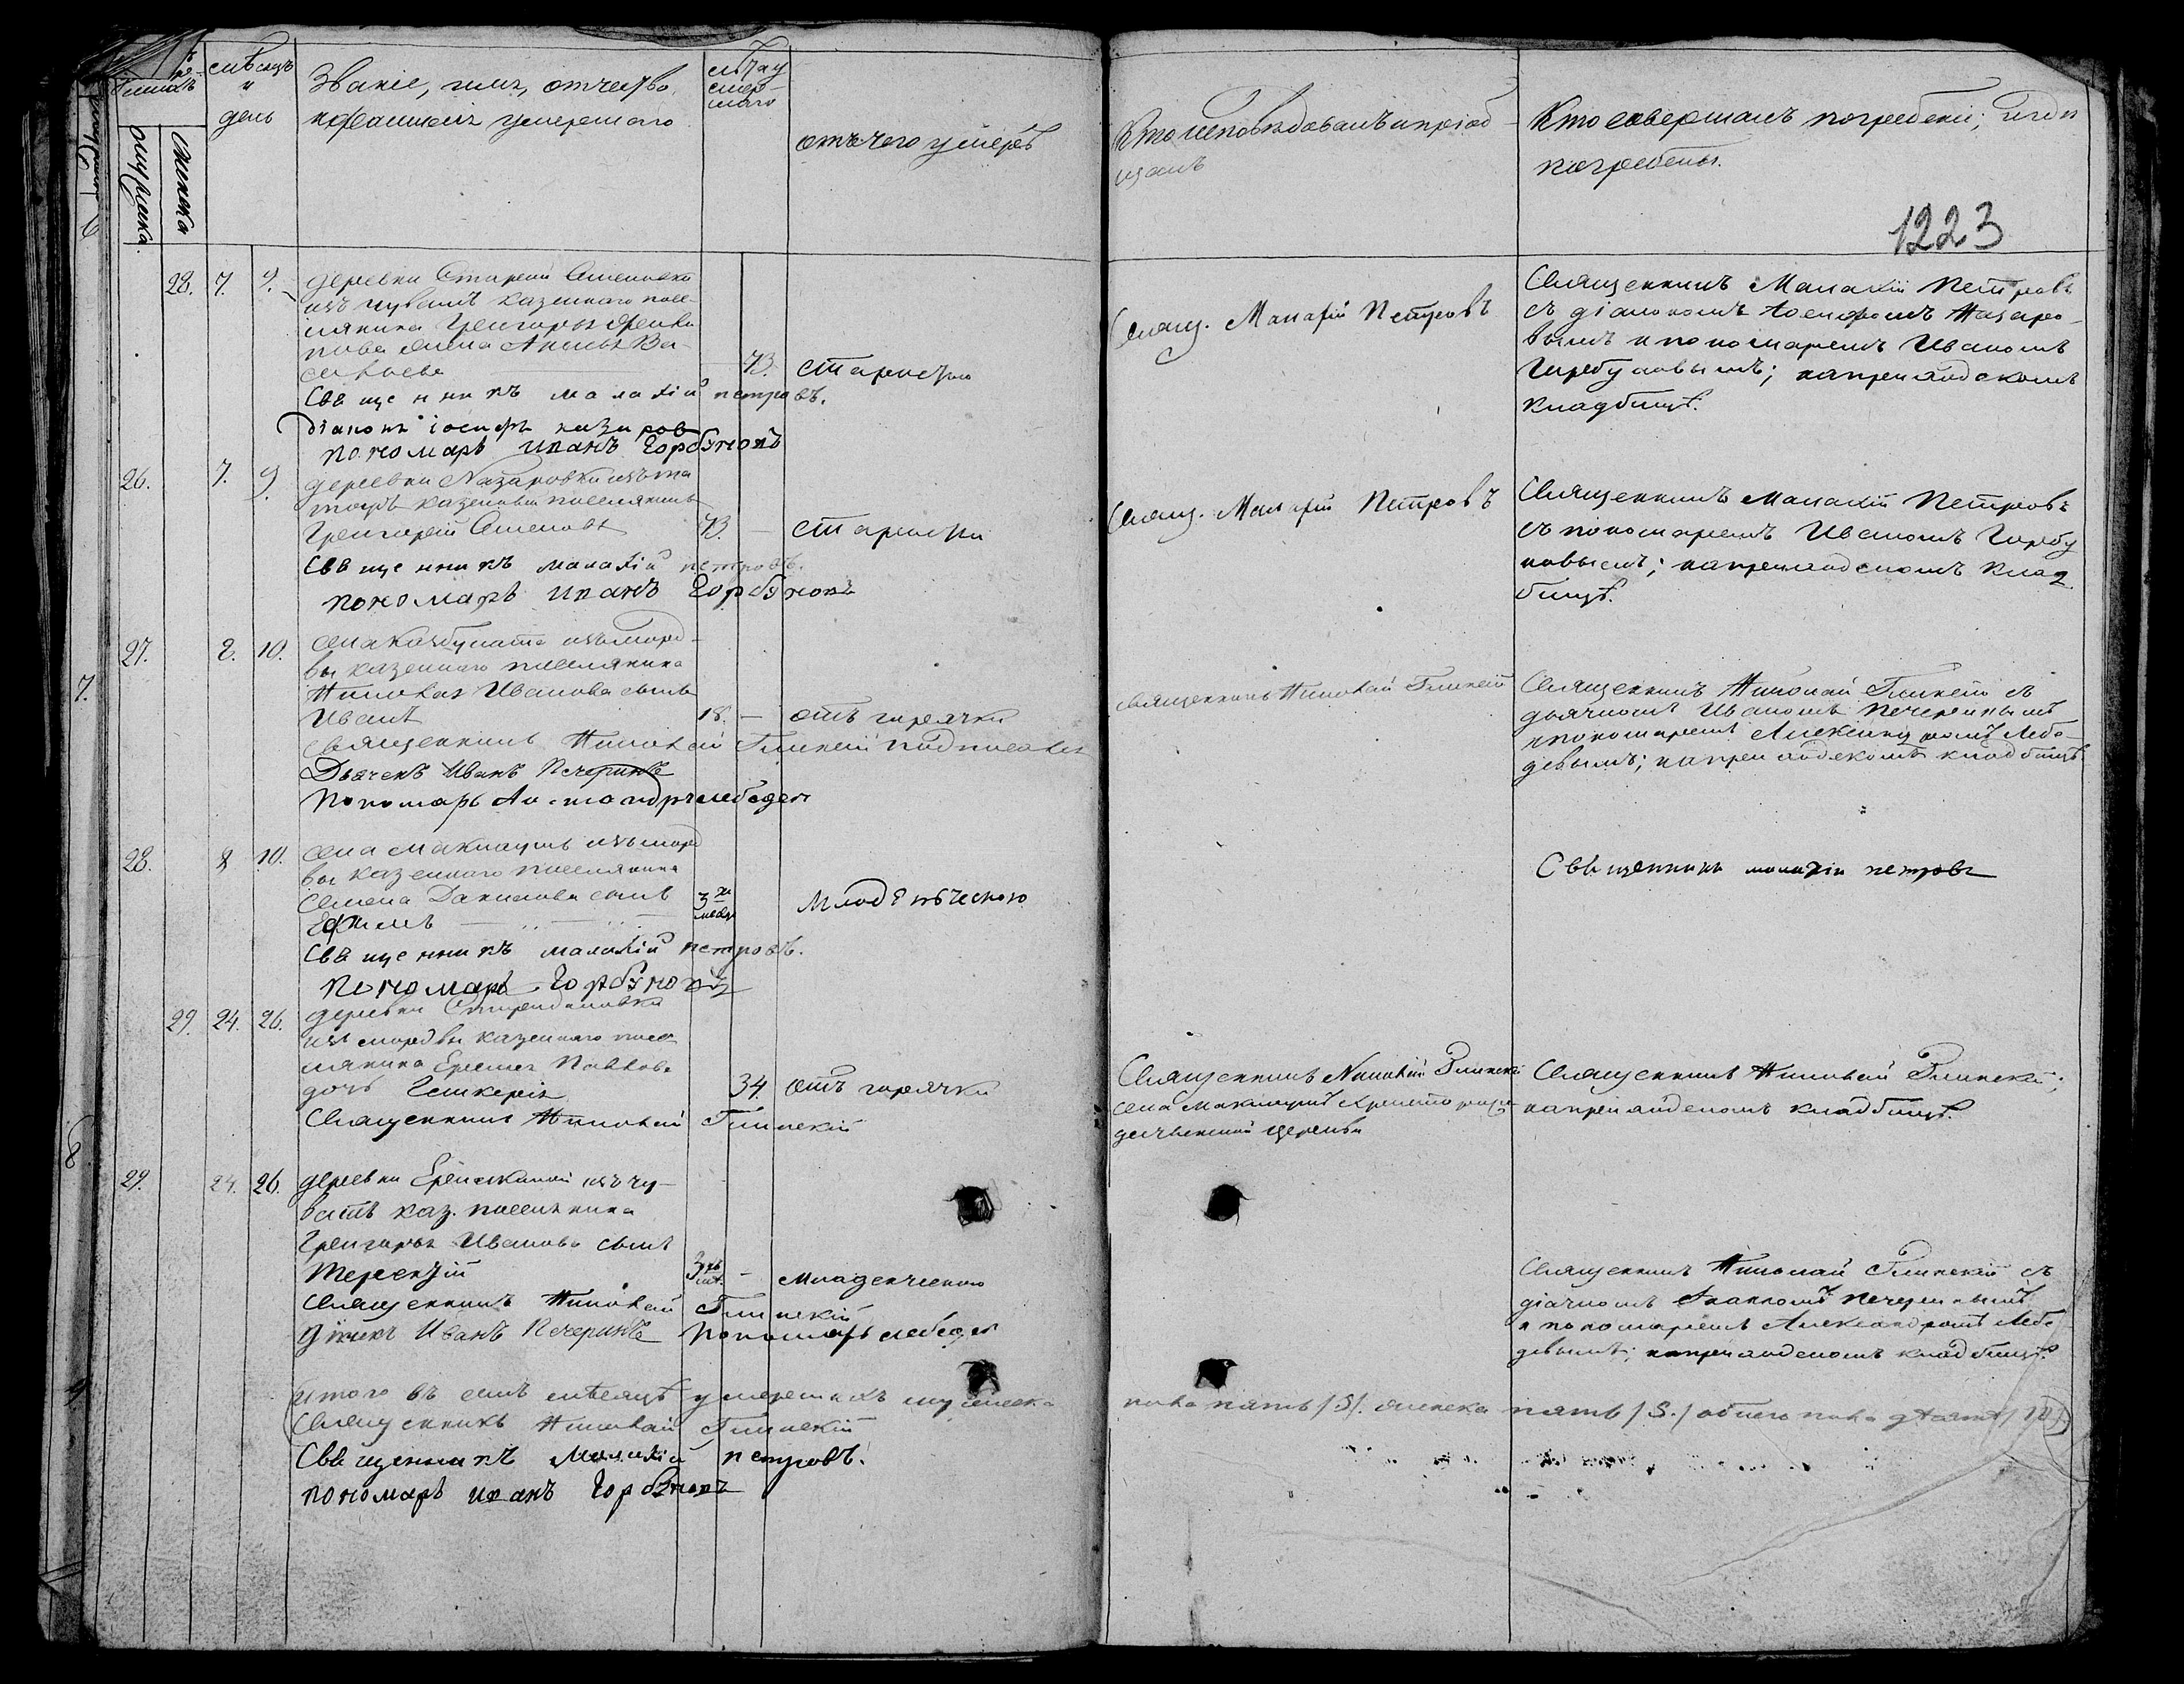 мѣсяцъ
и
день
мужеска
женска
Званіе, имя, отчество,
и фамилія умершаго
лѣта у
мер-
шаго
отъ чего умеръ
Кто исповѣдовалъ и пріоб-
щалъ
Кто совершалъ погребеніе, и гдѣ
погребены.
1223
28. 7. 9.
деревни Старой
изъ чувашъ казеннаго посе-
лянина Григорья
жена Васильева
73. старостію
Священникъ малахій петровъ.
діаконъ іосифъ назаров
пономарь иванъ Горбуновъ
Свящ. Малахій Петровъ
Священникъ Малахій Петровъ
съ діакономъ Іосифомъ Назаро-
вымъ и пономаремъ Иваномъ
Горбуновымъ; на приходскомъ
кладбищѣ.
26. 7. 9.
деревни Назаровки изъ та
таръ казенный поселянинъ
Григорій Семеновъ
73. — старости
Священникъ малахій петровъ.
пономарь иванъ Горбуновъ
Свящ. Малахій Петровъ
Священникъ Малахій Петровъ
съ пономаремъ Иваномъ Горбу
новымъ; на приходскомъ клад
бищѣ.
27. 8. 10.
села изъ морд-
вы казеннаго поселянина
Николая Иванова сынъ
Иванъ
18. — отъ горячки
Священникъ Николай Глинскій подписался
Дьячекъ Иванъ Печеринъ
Пономарь Александръ лебедев
священникъ Николай Глинскій
Священникъ Николай Глинскій съ
дьячкомъ Иваномъ Печеринымъ
и пономаремъ Александромъ Лебе-
девымъ; на приходскомъ кладбищѣ
28. 8 10.
села изъ морд
вы казеннаго поселянина
Семена Данилова сынъ
Ефимъ
3 хъ
меся
младенческою
Священникъ малахій петровъ.
пономарь Горбуновъ
Священникъ малахіи петровъ
29. 24. 26.
деревни
изъ мордвы казеннаго посе
лянина Павлова
дочь Гликерія
34. отъ горячки
Священникъ Николай Глинскій
Священникъ Николай Глинскій
села
церкви
Священникъ Николай Глинскій;
на приходскомъ кладбищѣ.
29. 24. 26.
деревни изъ чу-
вашъ каз. поселянина
Григорья Иванова сынъ
Терентій
3 хъ
— младенческою
Священникъ Николай Глинскій
Иванъ Печеринъ Пономарь лебедев
Священникъ Николай Глинскій съ
діачкомъ Печеринымъ
и пономаремъ Александромъ Лебе
девымъ; на приходскомъ кладбищѣ.
Итого въ семъ мѣсяцѣ умершихъ мужеска
пола пять /5/. женска пять /5./ обоего пола десять /10/
Священникъ Николай Глинскій
Священникъ Малахій петровъ.
пономарь иванъ Горбуновъ
7.
8